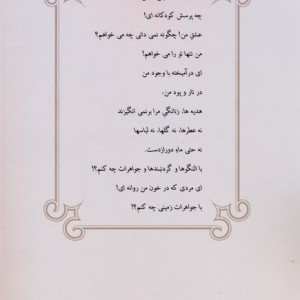 چه پرسش کودکانه ای!
عشق من! چگونه نمی دانی چه می خواهم؟
من تنها تو را می خواهم!
ای درآمیخته با وجود من
در تار و پود من.
هدیه ها، زنانگی مرا برنمی انگیزند
نه عطرها، نه گلها، نه لباسها
نه حتی ماهِ دورازدست.
با النگوها و گردنبندها و جواهرات چه کنم؟!
ای مردی که در خون من روانه ای!
با جواهرات زمینی چه کنم؟!